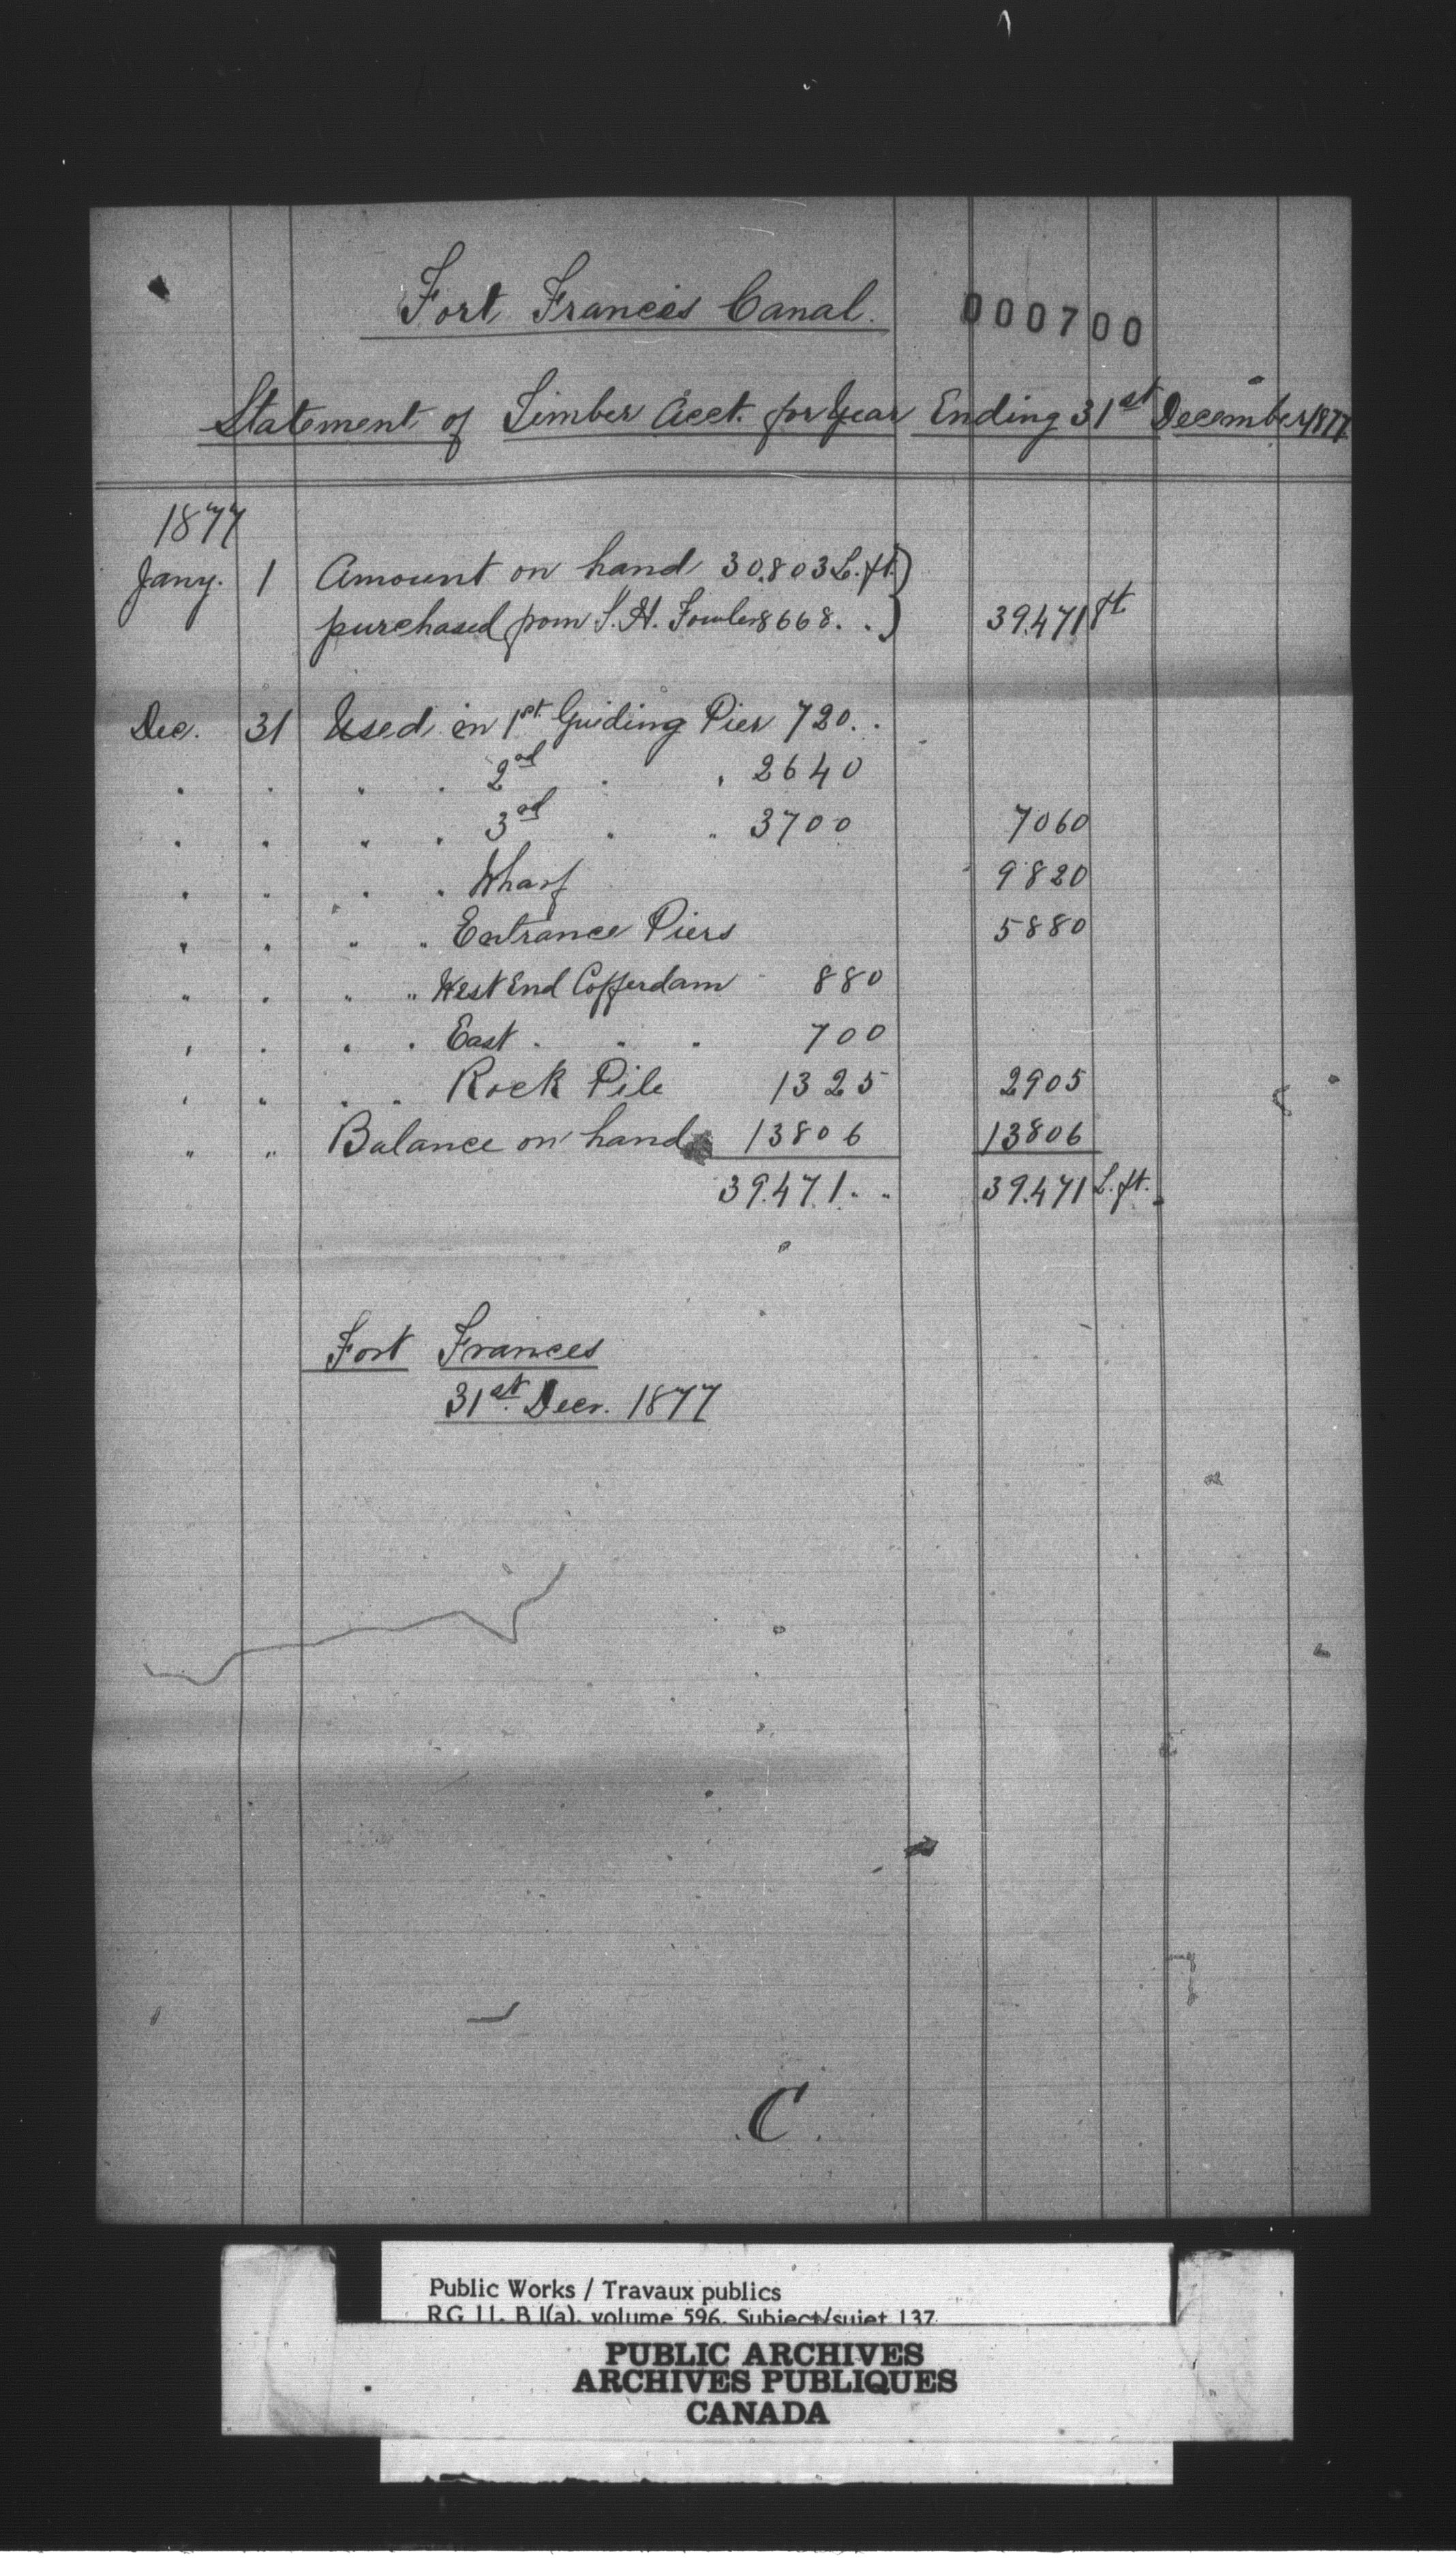 Fort Frances Canal.
000700
Statement of Timber Acct. for Year Ending 31st December 1877
1877
Jany. 1 Amount on hand 30.803 L. ft. }
purchased from S. H. Fowler 8668 . . } 39.471 ft
Dec. 31 Used in 1st Guiding Pier 720. .
" " " " 2nd " " 2640
" " " " 3rd " " 3700 7060
" " " " Wharf 9820
" " " " Entrance Piers 5880
" " " " West End Cofferdam 880
" " " " East " " " 700
" " " " Rock Pile 1325 2905
" " Balance on hand 13806 13806
39.471. " 39.471 L. ft.
Fort Frances
31st Decr. 1877
C.
Public Works / Travaux publics
RG 11, B 1(a), volume 596, Subject/sujet 137
PUBLIC ARCHIVES
ARCHIVES PUBLIQUES
CANADA